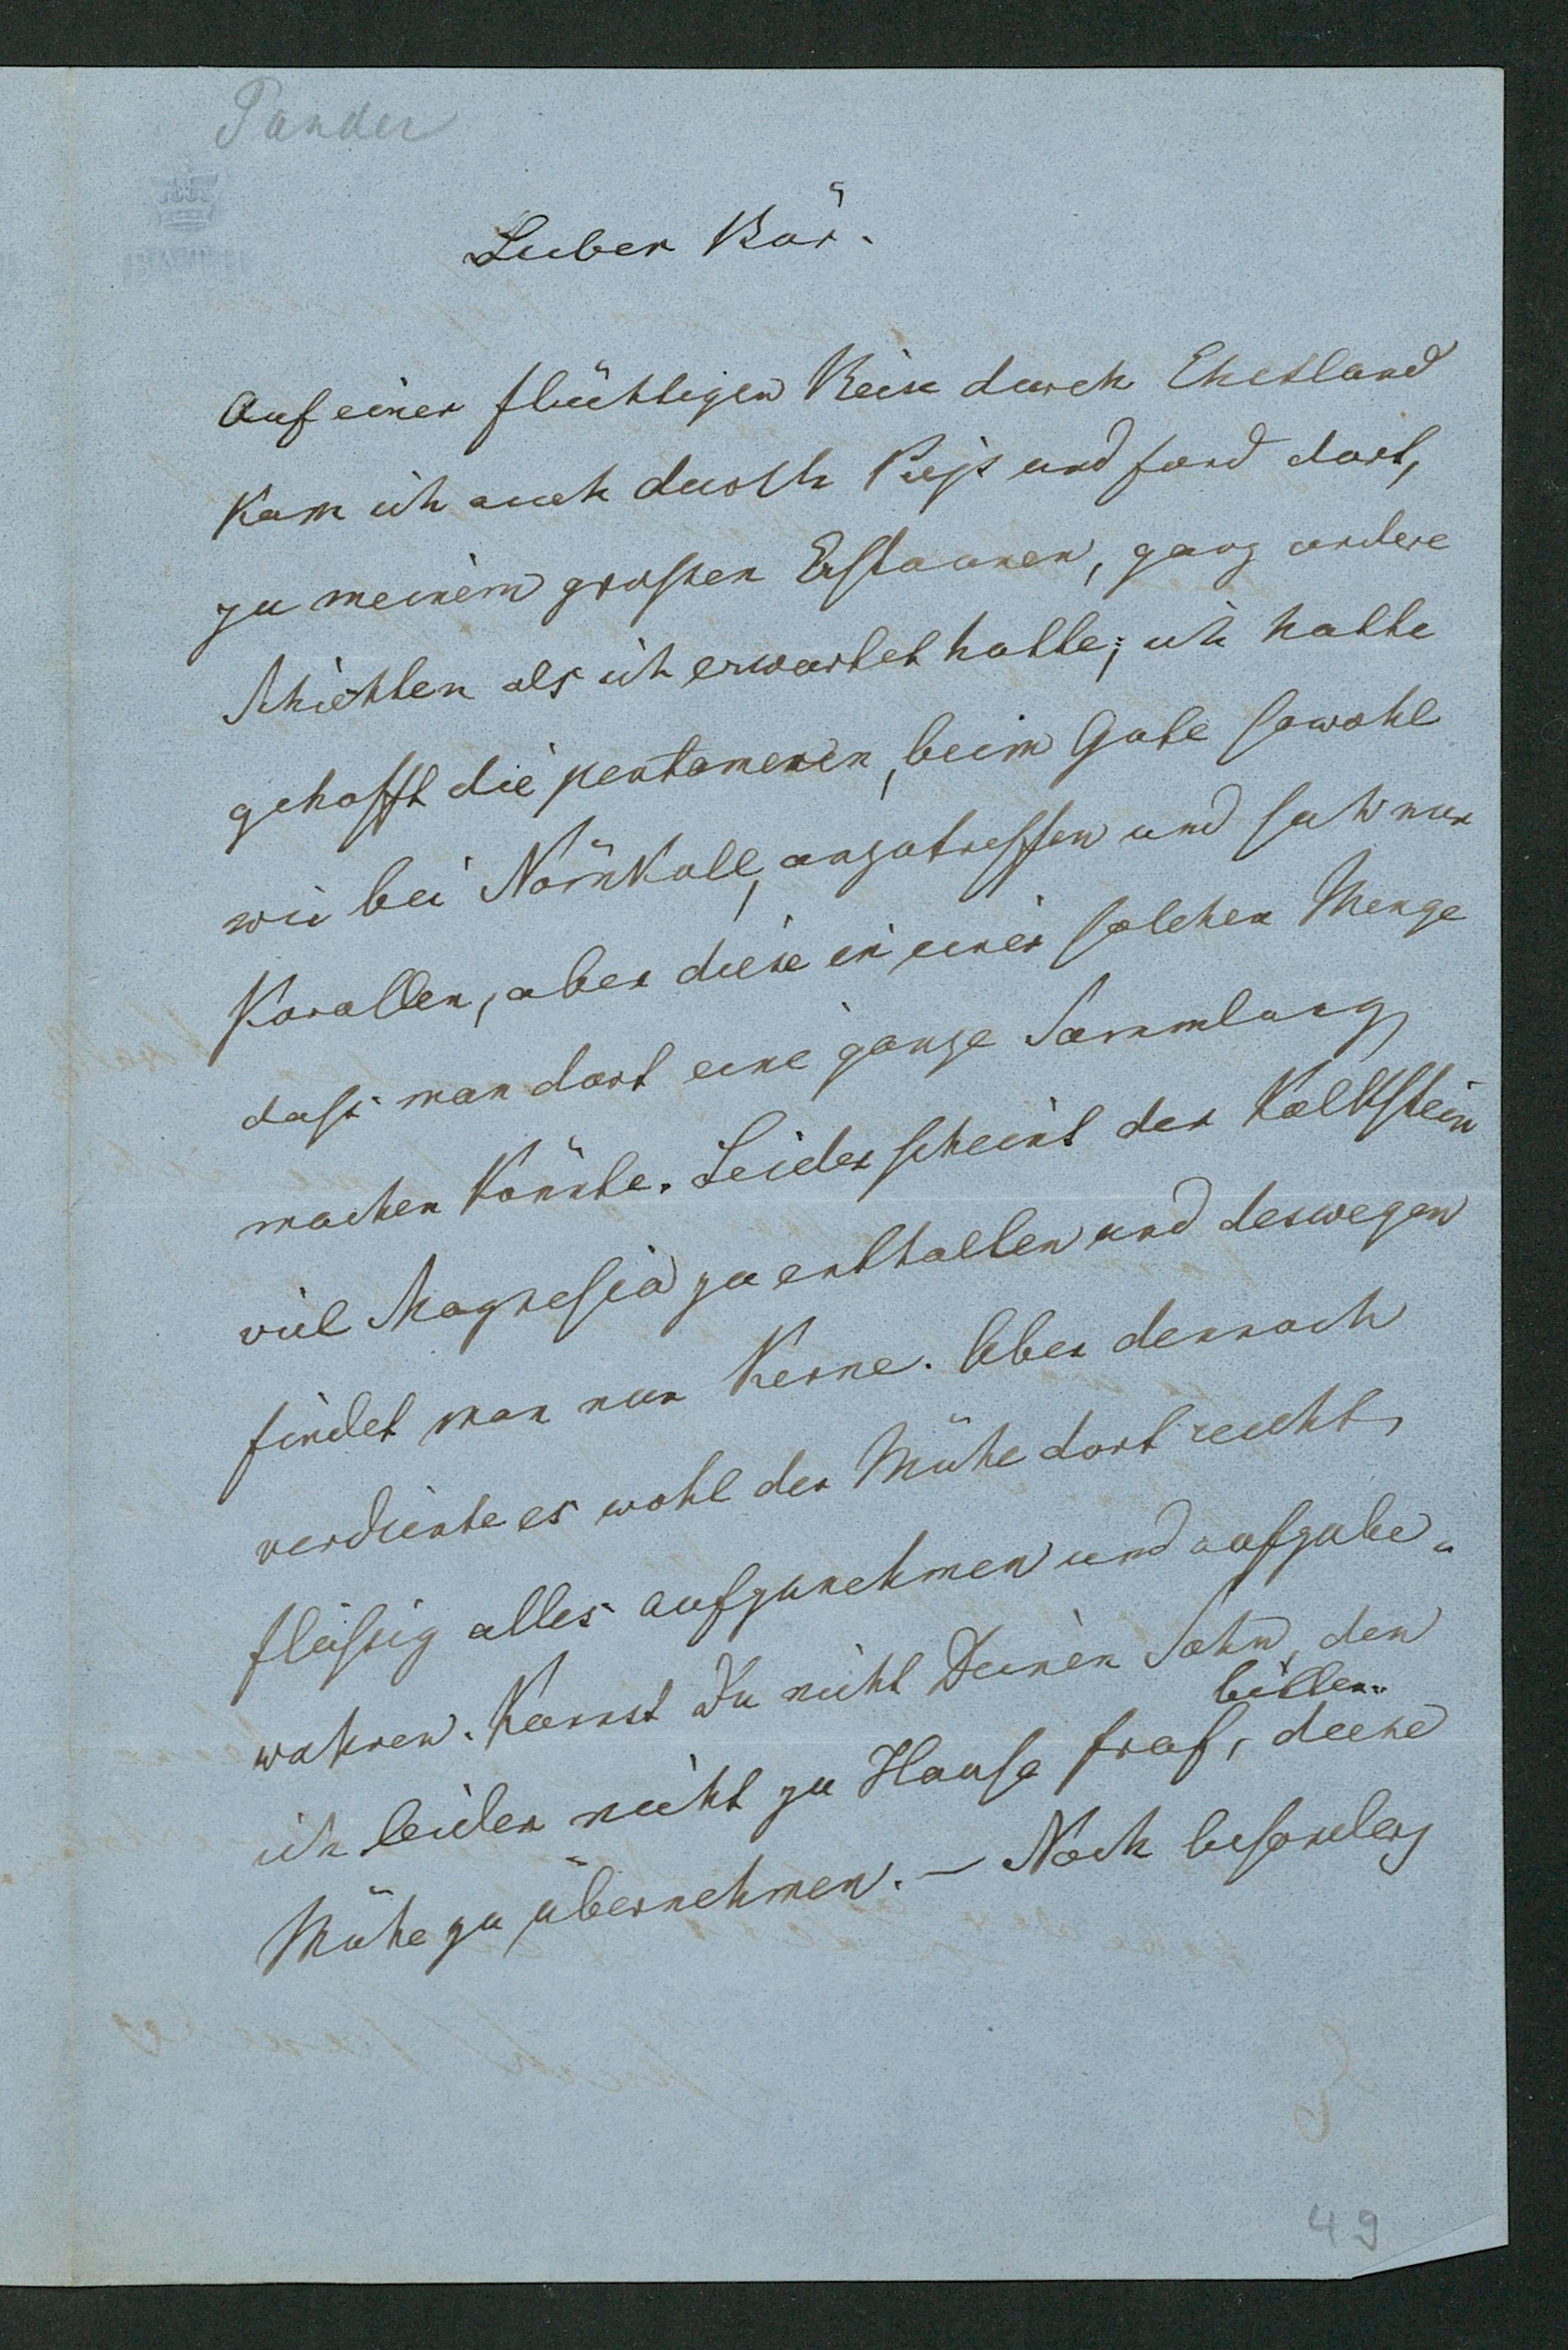 Pander
Lieber Bär.
Auf einer flüchtigen Reise durch Ehstland
kam ich auch durch Piep und fand dort,
zu meinem großen Erstaunen, ganz andere
Schichten als ich erwartet hatte; ich hatte
gehofft die pentameren, beim Gute sowohl
wie bei Nömküll, anzutreffen und sah nur
Korallen, aber diese in einer solchen Menge
daß man dort eine ganze Sammlung
machen könnte. Leider scheint der Kalkstein
viel Magnesia zu enthalten und deswegen
findet man nur Kerne. Aber dennoch
verdiente es wohl der Mühe dort recht
fleißig alles aufzunehmen und aufzube-
wahren. Kannst Du nicht Deinen Sohn, den
bitten
ich leider nicht zu Hause traf, diese
Mühe zu übernehmen. — Noch besonders
49